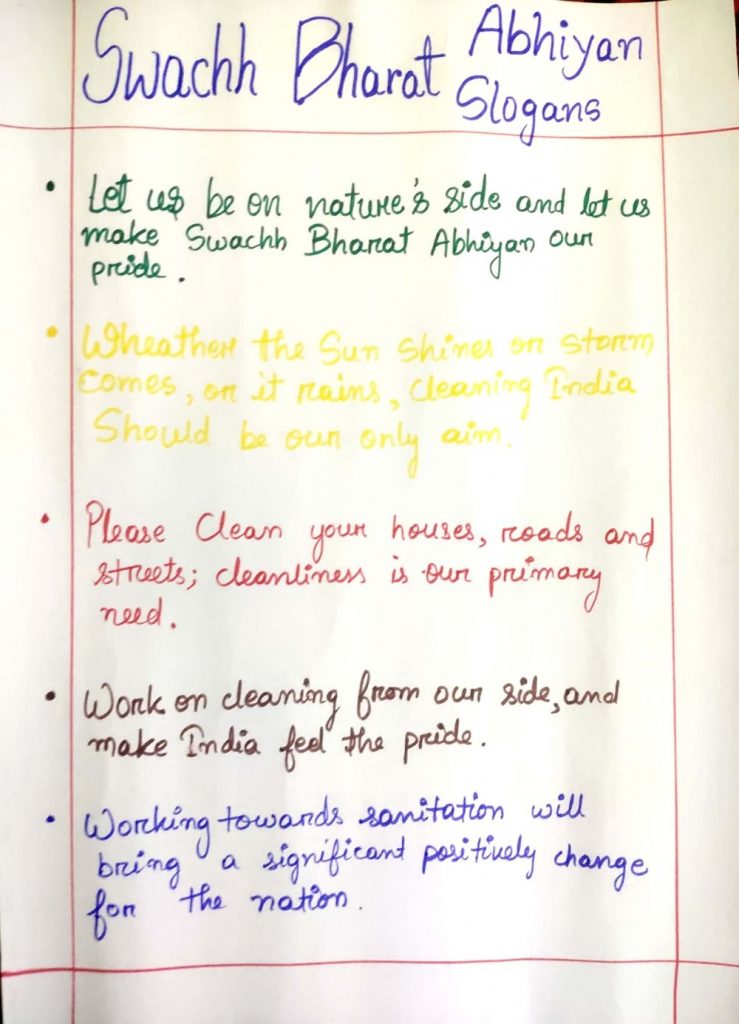 Swachh Bharat Abhiyan
Slogans
• Let us be on nature's side and let us
make Swachh Bharat Abhiyan our
pride.
• Wheather the Sun Shines or storm
comes, or it rains, cleaning India
Should be our only aim.
• Please Clean your houses, roads and
streets; cleanliness is our primary
need.
• Work on cleaning from our side, and
make India feel the pride.
• Working towards sanitation will
bring a significant positively change
for the nation.